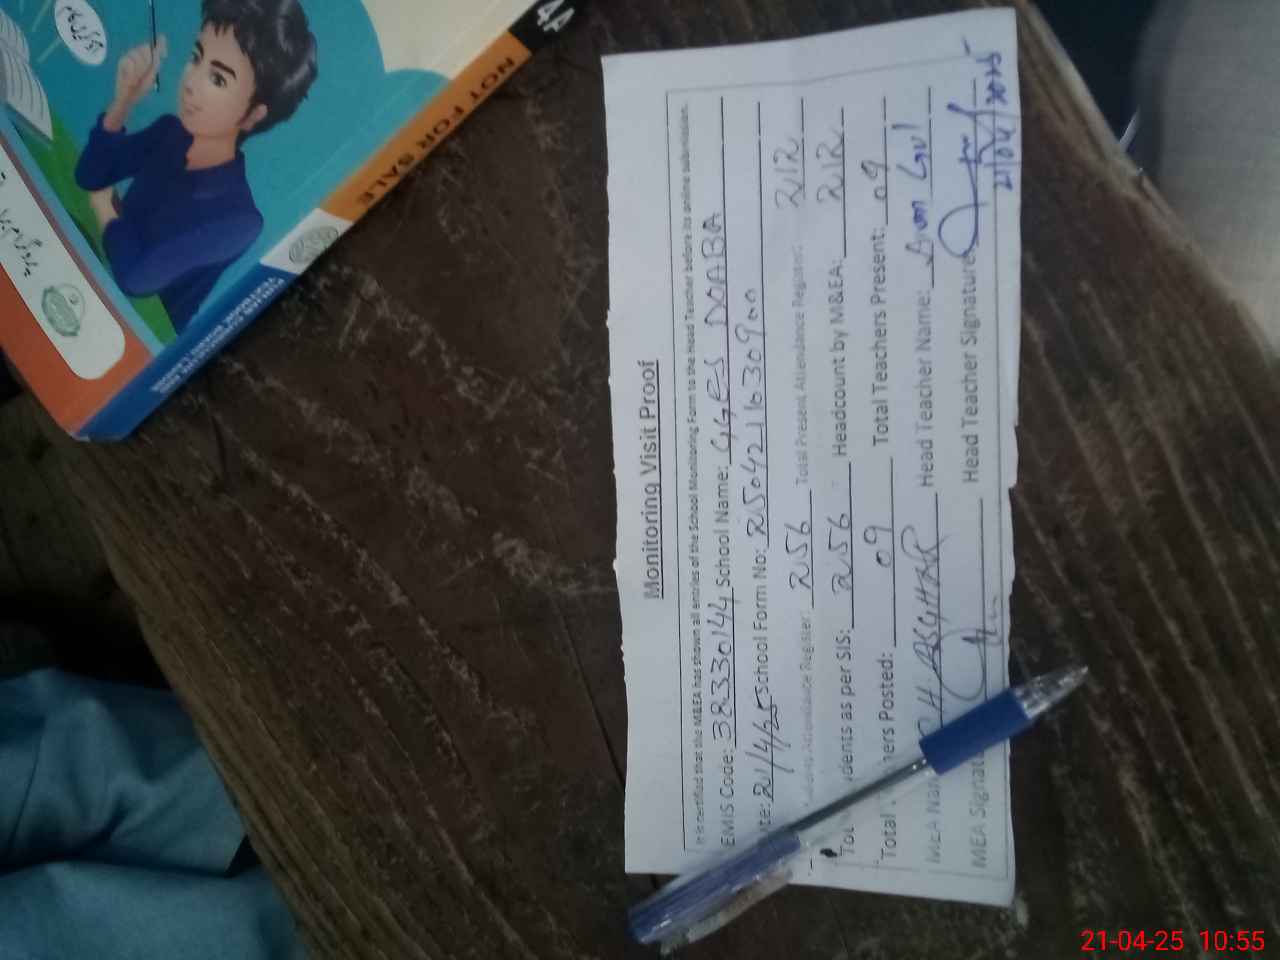 Monitoring Visit Proof
It is certified that the M&EA has shown all entries of the School Monitoring Form to the Head Teacher before its online submission.
EMIS Code: 38330144 School Name: GGES DOABA
te: 21/4/25 School Form No: 2504211030900
Attendance Register: 256 Total Present Attendance Register: 212
Tot dents as per SIS: 256 Headcount by M&EA: 212
Total hers Posted: 09 Total Teachers Present: 09
MEA Na ASGHAR Head Teacher Name: Gul
MEA Signat Head Teacher Signature
21/04/2025
44
NOT FOR SALE
21-04-25 10:55